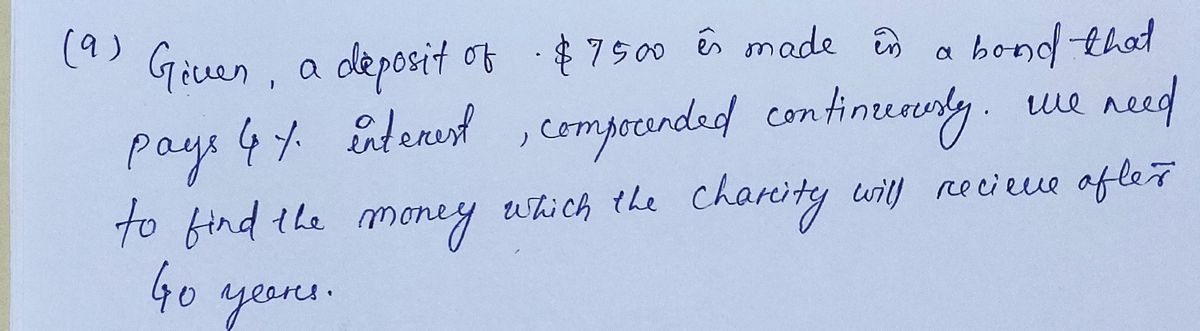 (a) Given, a deposit of $7500 is made in a bond that
pays 4% interest, compounded continuously. we need
to find the money which the charity will recieve after
40 years.